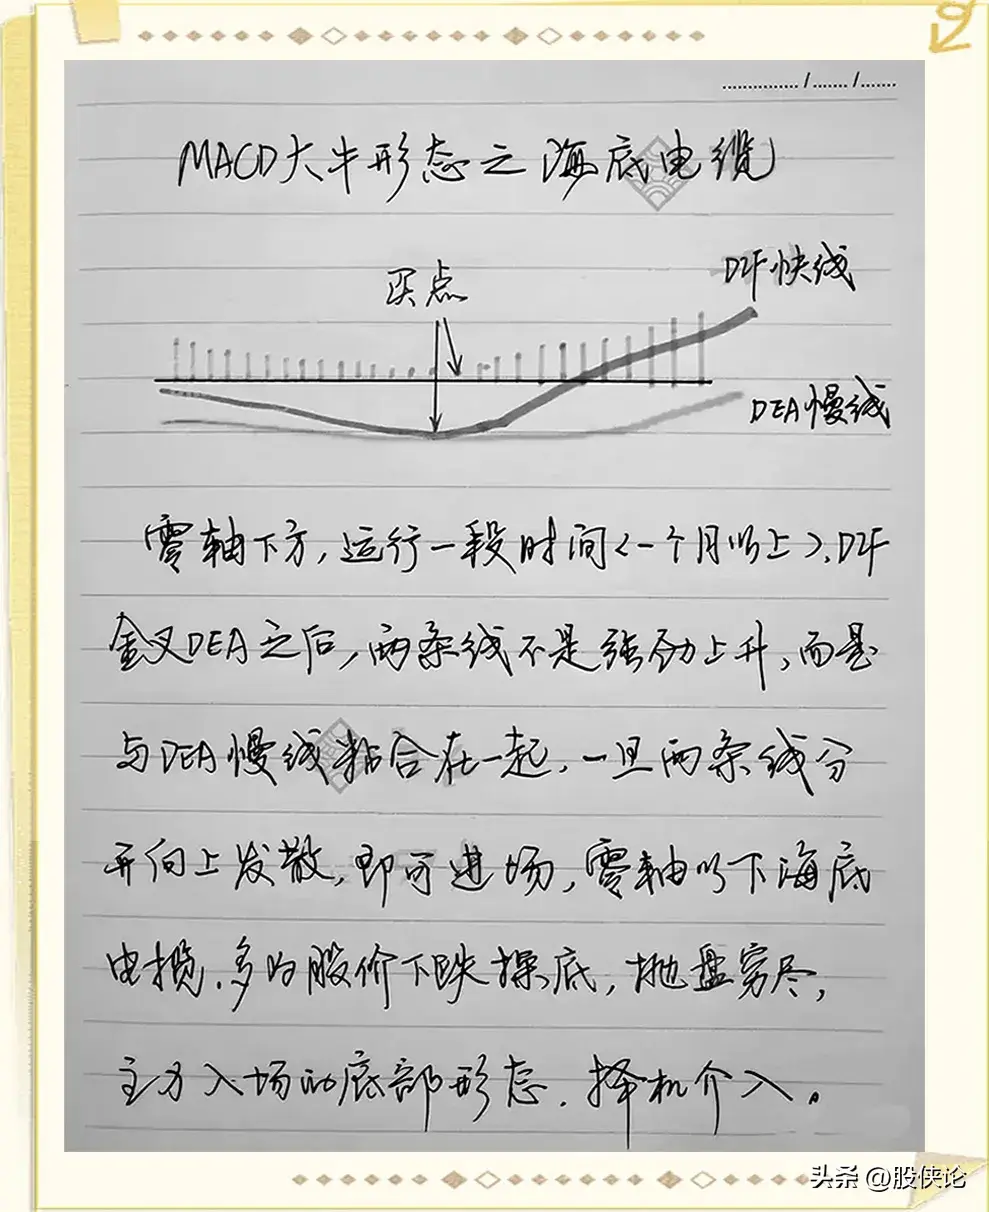 ............../......./.......
MACD大牛形态之海底电缆
买点
DIF快线
DEA慢线
零轴下方，运行一段时间<一个月以上>，DIF
金叉DEA之后，两条线不是强劲上升，而是
与DEA慢线粘合在一起，一旦两条线分
开向上发散，即可进场，零轴以下海底
电揽，多为股价下跌探底，抛盘穷尽，
主力入场的底部形态，择机介入。
头条 @股侠论